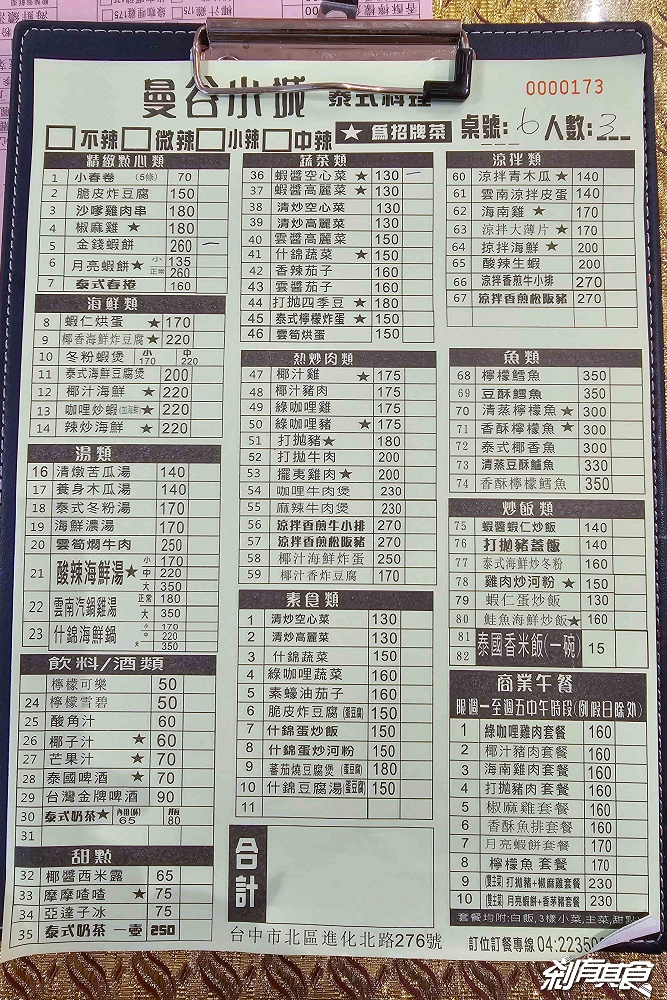 曼谷小城 泰式料理
0000173
□不辣□微辣□小辣□中辣 ★為招牌菜 桌號:6 人數:3
精緻點心類
1 小春卷 (5條) 70
2 脆皮炸豆腐 150
3 沙嗲雞肉串 180
4 椒麻雞★ 180
5 金錢蝦餅 260 一
6 月亮蝦餅★ 小 135 正常 260
7 泰式春捲 160
海鮮類
8 蝦仁烘蛋★ 170
9 椰香海鮮炸豆腐★ 220
10 冬粉蝦煲 小 170 中 220
11 泰式海鮮豆腐煲 200
12 椰汁海鮮★ 220
13 咖哩炒蝦★ 220
14 辣炒海鮮★ 220
湯類
16 清燉苦瓜湯 140
17 養身木瓜湯 140
18 泰式冬粉湯 170
19 海鮮濃湯 170
20 雲筍燜牛肉 250
21 酸辣海鮮湯★ 小 170 中 220 大 350
22 雲南汽鍋雞湯 正常 180 大 350
23 什錦海鮮鍋 小 170 中 220 大 350
飲料/酒類
檸檬可樂 50
24 檸檬雪碧 50
25 酸角汁 60
26 椰子汁★ 60
27 芒果汁★ 70
28 泰國啤酒★ 70
29 台灣金牌啤酒 90
30 泰式奶茶★ 內用(杯) 65 外瓶 80
31
甜點
32 椰醬西米露 65
33 摩摩喳喳★ 75
34 亞達子冰 75
35 泰式奶茶 一壺 250
蔬菜類
36 蝦醬空心菜★ 130 一
37 蝦醬高麗菜★ 130
38 清炒空心菜 130
39 清炒高麗菜 130
40 雲醬高麗菜 150
41 什錦蔬菜★ 150
42 香辣茄子 160
43 雲醬茄子 160
44 打拋四季豆★ 180
45 泰式檸檬炸蛋★ 150
46 雲筍烘蛋 150
熱炒肉類
47 椰汁雞★ 175
48 椰汁豬肉 175
49 綠咖哩雞 175
50 綠咖哩豬★ 175
51 打拋豬★ 180
52 打拋牛肉 200
53 擺夷雞肉★ 200
54 咖哩牛肉煲 230
55 麻辣牛肉煲 230
56 涼拌香煎牛小排 270
57 涼拌香煎松阪豬 270
58 椰汁海鮮炸蛋 250
59 椰汁香炸豆腐 170
素食類
1 清炒空心菜 130
2 清炒高麗菜 130
3 什錦蔬菜 150
4 綠咖哩蔬菜 160
5 素蠔油茄子 160
6 脆皮炸豆腐(蛋豆腐) 150
7 什錦蛋炒飯 150
8 什錦蛋炒河粉 150
9 蕃茄燒豆腐煲(蛋豆腐) 180
10 什錦豆腐湯(蛋豆腐) 150
11
合計
涼拌類
60 涼拌青木瓜★ 140
61 雲南涼拌皮蛋 140
62 海南雞★ 170
63 涼拌大薄片★ 170
64 掠拌海鮮★ 200
65 酸辣生蝦 200
66 涼拌香煎牛小排 270
67 涼拌香煎松阪豬 270
魚類
68 檸檬鱈魚 350
69 豆酥鱈魚 350
70 清蒸檸檬魚★ 300
71 香酥檸檬魚★ 300
72 泰式椰香魚 300
73 清蒸豆酥鱸魚 330
74 香酥檸檬鱈魚 350
炒飯類
75 蝦醬蝦仁炒飯 140
76 打拋豬蓋飯 140
77 泰式海鮮炒冬粉 160
78 雞肉炒河粉★ 150
79 蝦仁蛋炒飯 130
80 鮭魚海鮮炒飯★ 160
81 82 泰國香米飯(一碗) 15
商業午餐
限週一至週五中午時段(例假日除外)
1 綠咖哩雞肉套餐 160
2 椰汁豬肉套餐 160
3 海南雞肉套餐 160
4 打拋豬肉套餐 160
5 椒麻雞套餐 160
6 香酥魚排套餐 160
7 月亮蝦餅套餐 170
8 檸檬魚 套餐 170
9 (雙主菜) 打拋豬+椒麻雞套餐 230
10 (雙主菜) 月亮蝦餅+香茅豬套餐 230
套餐均附:白飯,3樣小菜,主菜,甜點
台中市北區進化北路276號 訂位訂餐專線 04:2235